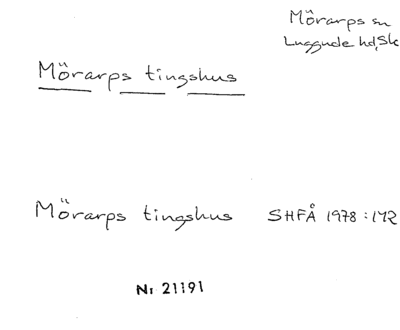 Mörarps sn
Luggude hd, Sk
Mörarps tingshus
Mörarps tingshus SHFÅ 1978:142
Nr 21191